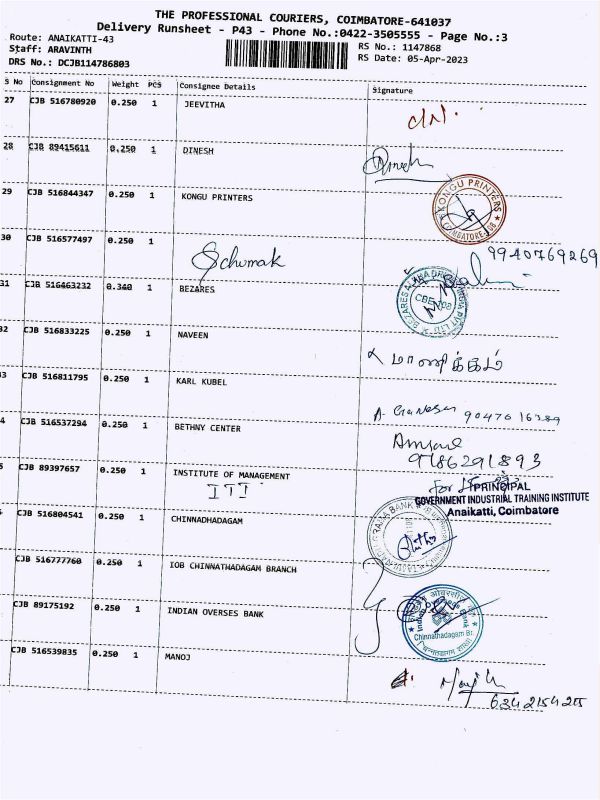 THE PROFESSIONAL COURIERS, COIMBATORE-641037
Delivery Runsheet - P43 - Phone No.:0422-3505555 - Page No.:3
Route: ANAIKATTI-43
RS No.: 1147868
Staff: ARAVINTH
RS Date: 05-Apr-2023
DRS No.: DCJB114786803
S No Consignment No Weight PCS Consignee Details Signature
27 CJB 516780920 0.250 1 JEEVITHA
28 CJB 89415611 0.250 1 DINESH Dinesh
29 CJB 516844347 0.250 1 KONGU PRINTERS
KONGU PRINTERS
30 CJB 516577497 0.250 1 9940769269
31 CJB 516463232 0.340 1 BEZARES
CBE
32 CJB 516833225 0.250 1 NAVEEN
மாணிக்கம்
33 CJB 516811795 0.250 1 KARL KUBEL
A. Ganesan 9047016389
4 CJB 516537294 0.250 1 BETHNY CENTER
9786291893
5 CJB 89397657 0.250 1 INSTITUTE OF MANAGEMENT
ITI
for PRINCIPAL
GOVERNMENT INDUSTRIAL TRAINING INSTITUTE
Anaikatti, Coimbatore
CJB 516804541 0.250 1 CHINNADHADAGAM
CJB 516777760 0.250 1 IOB CHINNATHADAGAM BRANCH
CJB 89175192 0.250 1 INDIAN OVERSES BANK
Chinnathadagam Br.
CJB 516539835 0.250 1 MANOJ
6342154215